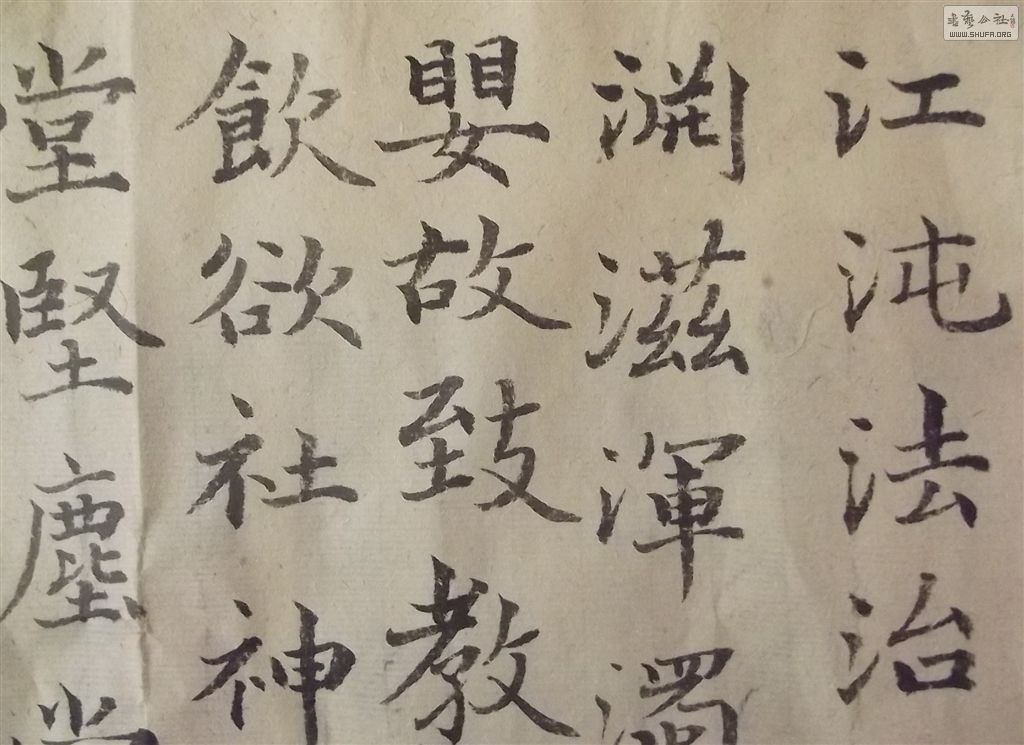 書藝公社
WWW.SHUFA.ORG
江沌法治
淵滋渾濁
嬰故致教
飲欲社神
堂堅塵